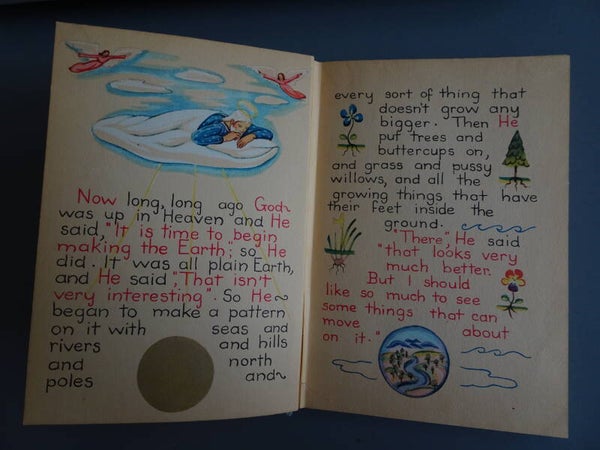 Now long, long ago God
was up in Heaven and He
said, "It is time to begin
making the Earth", so He
did. It was all plain Earth,
and He said, "That isn't
very interesting". So He
began to make a pattern
on it with seas and
rivers and hills
and north
poles and
every sort of thing that
doesn't grow any
bigger. Then He
put trees and
buttercups on,
and grass and pussy
willows, and all the
growing things that have
their feet inside the
ground.
"There", He said
"that looks very
much better.
But I should
like so much to see
some things that can
move about
on it."